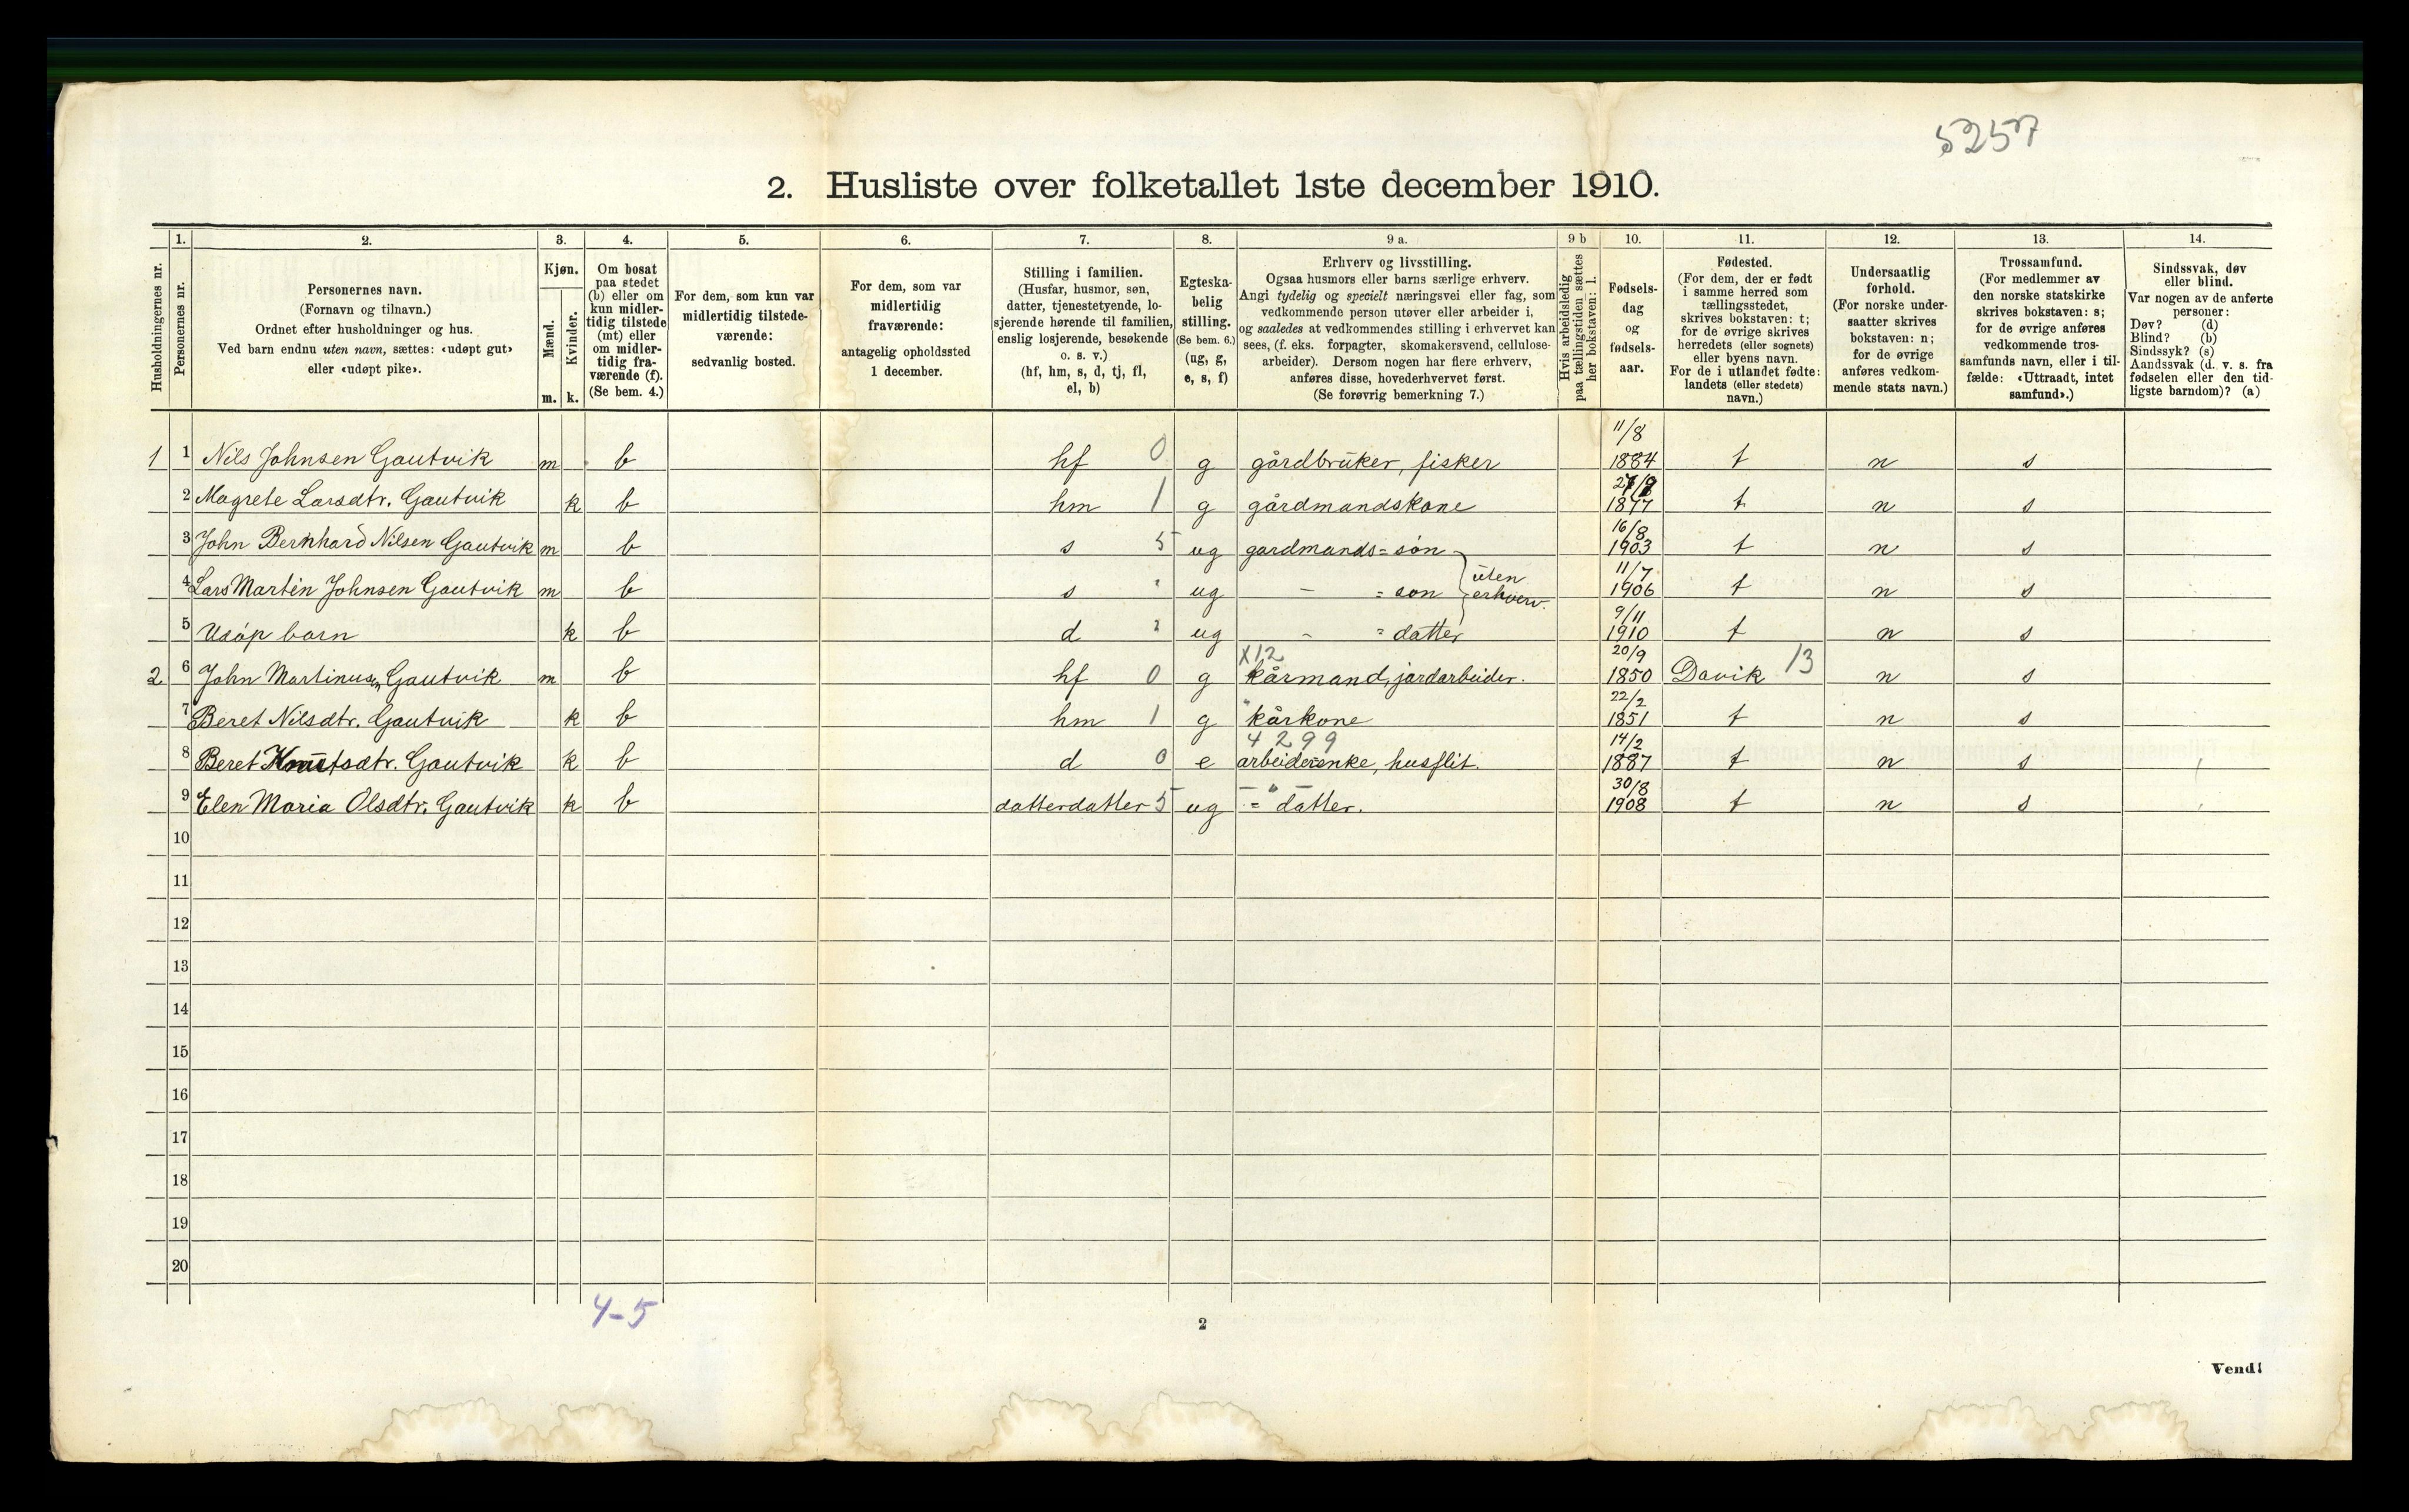 5257
2. Husliste over folketallet 1ste december 1910.
Husholdningernes nr.
1.
Personernes nr.
2.
Personernes navn.
(Fornavn og tilnavn.)
Ordnet efter husholdninger og hus.
Ved barn endnu uten navn, sættes: «udøpt gut»
eller «udøpt pike».
3.
Kjøn.
Mænd.
Kvinder.
m. k.
4.
Om bosat
paa stedet
(b) eller om
kun midler-
tidig tilstede
(mt) eller
om midler-
tidig fra-
værende (f).
(Se bem. 4.)
5.
For dem, som kun var
midlertidig tilstede-
værende:
sedvanlig bosted.
6.
For dem, som var
midlertidig
fraværende:
antagelig opholdssted
1 december.
7.
Stilling i familien.
(Husfar, husmor, søn,
datter, tjenestetyende, lo-
sjerende hørende til familien,
enslig losjerende, besøkende
o. s. v.)
(hf, hm, s, d, tj, fl,
el, b)
8.
Egteska-
belig
stilling.
(Se bem. 6.)
(ug, g,
e, s, f)
9 a.
Erhverv og livsstilling.
Ogsaa husmors eller barns særlige erhverv.
Angi tydelig og specielt næringsvei eller fag, som
vedkommende person utøver eller arbeider i,
og saaledes at vedkommendes stilling i erhvervet kan
sees, (f. eks. forpagter, skomakersvend, cellulose-
arbeider). Dersom nogen har flere erhverv,
anføres disse, hovederhvervet først.
(Se forøvrig bemerkning 7.)
9 b
Hvis arbeidsledig
paa tællingstiden sættes
her bokstaven: l.
10.
Fødsels-
dag
og
fødsels-
aar.
11.
Fødested.
(For dem, der er født
i samme herred som
tællingsstedet,
skrives bokstaven: t;
for de øvrige skrives
herredets (eller sognets)
eller byens navn.
For de i utlandet fødte:
landets (eller stedets)
navn.)
12.
Undersaatlig
forhold.
(For norske under-
saatter skrives
bokstaven: n;
for de øvrige
anføres vedkom-
mende stats navn.)
13.
Trossamfund.
(For medlemmer av
den norske statskirke
skrives bokstaven: s;
for de øvrige anføres
vedkommende tros-
samfunds navn, eller i til-
fælde: «Uttraadt, intet
samfund».)
14.
Sindssvak, døv
eller blind.
Var nogen av de anførte
personer:
Døv? (d)
Blind? (b)
Sindssyk? (s)
Aandssvak (d. v. s. fra
fødselen eller den tid-
ligste barndom)? (a)
1 1 Nils Johnsen Gautvik m b hf 0 g gårdbruker, fisker 11/8 1884 t n s
2 Magrete Larsdtr. Gautvik k b hm 1 g gårdmandskone 1877 t n s
3 John Bernhard Nilsen Gautvik m b s 5 ug gardmands=søn 16/8 1903 t n s
4 Lars Martin Johnsen Gautvik m b s " ug - =søn uten erhverv. 11/7 1906 t n s
5 Udøp barn k b d " ug - =datter 9/11 1910 t n s
2 6 John Martinusen Gautvik m b hf 0 g X12 kårmand, jordarbeider. 20/9 1850 Davik 13 n s
7 Beret Nilsdtr. Gautvik k b hm 1 g " kårkone 22/2 1851 t n s
8 Beret Knutsdtr. Gautvik k b d 0 e 4299 arbeiderenke, husflit. 14/2 1887 t n s
9 Elen Maria Olsdtr. Gautvik k b datterdatter 5 ug - " - = datter. 30/8 1908 t n s
10
11
12
13
14
15
16
17
18
19
20
4-5
2
Vend!